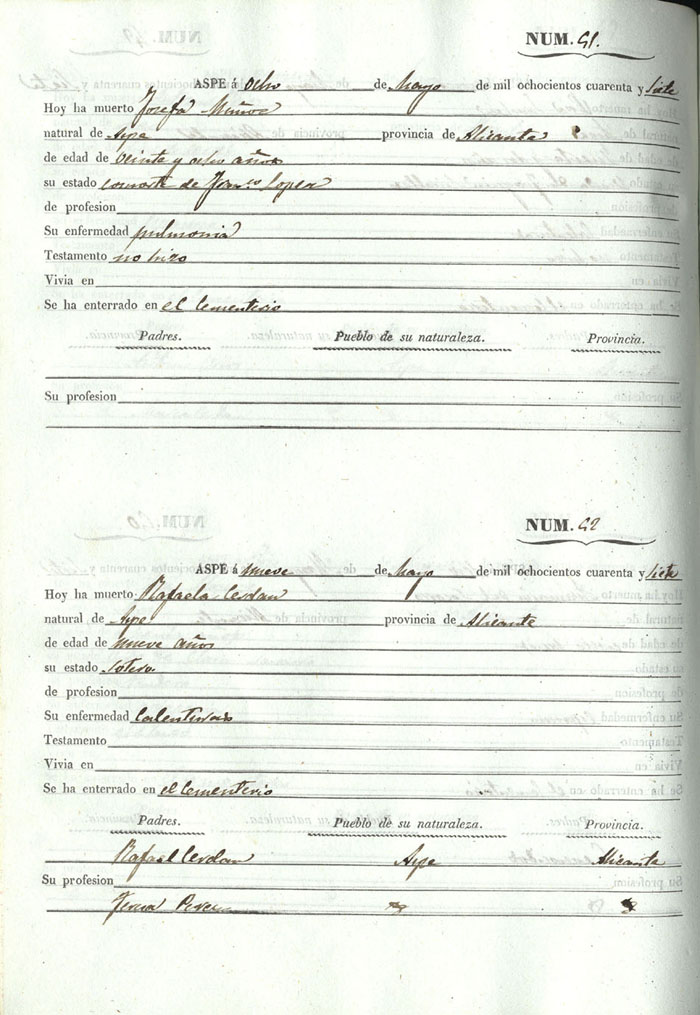 NUM. 51.
ASPE á ocho de Mayo de mil ochocientos cuarenta y siete
Hoy ha muerto Josefa Muñoz
natural de Aspe provincia de Alicante
de edad de veinte y ocho años
su estado consorte de Franco Lopez
de profesion
Su enfermedad pulmonia
Testamento no hizo
Vivia en
Se ha enterrado en el Cementerio
Padres. Pueblo de su naturaleza. Provincia.
Su profesion
NUM. 52
ASPE á nueve de Mayo de mil ochocientos cuarenta y siete
Hoy ha muerto Rafaela Cerdan
natural de Aspe provincia de Alicante
de edad de nueve años
su estado
de profesion
Su enfermedad Calenturas
Testamento
Vivia en
Se ha enterrado en el Cementerio
Padres. Pueblo de su naturaleza. Provincia.
Rafael Cerdan Aspe Alicante
Su profesion
Teresa Perez